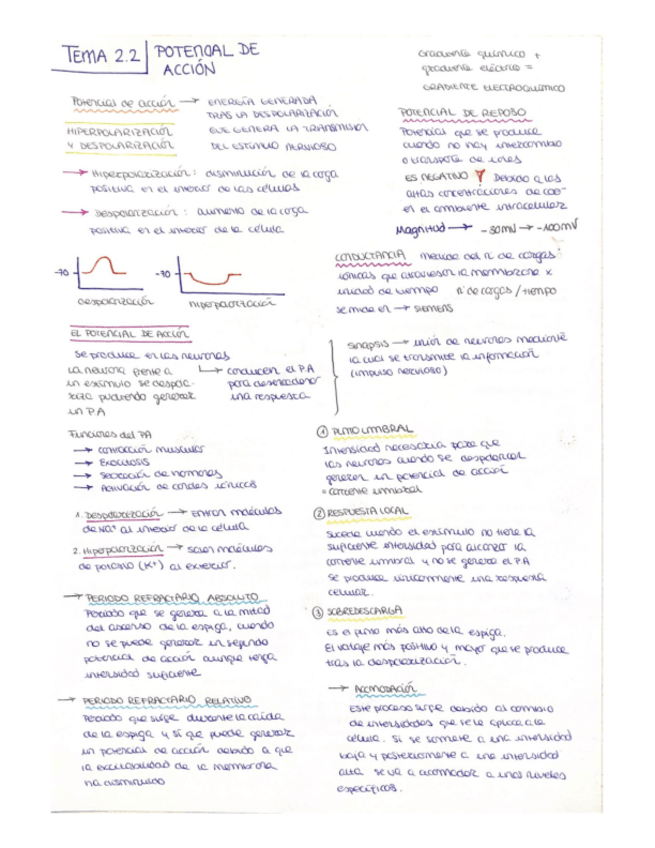 TEMA 2.2 POTENCIAL DE
ACCIÓN
Gradiente químico +
gradiente eléctrico =
GRADIENTE ELECTROQUÍMICO
Potencial de acción → ENERGÍA GENERADA
TRAS LA DESPOLARIZACIÓN
QUE GENERA LA TRANSMISIÓN
DEL ESTÍMULO NERVIOSO
HIPERPOLARIZACIÓN
Y DESPOLARIZACIÓN
→ Hiperpolarización: disminución de la carga
positiva en el interior de las células
→ Despolarización: aumento de la carga
positiva en el interior de la célula
-70
despolarización
-70
hiperpolarización
POTENCIAL DE REPOSO
Potencial que se produce
cuando no hay intercambio
o transporte de iones
ES NEGATIVO Debido a las
altas concentraciones de
en el ambiente intracelular
Magnitud → -30mV → -100mV
CONDUCTANCIA medida del nº de cargas
iónicas que atraviesan la membrana x
unidad de tiempo nº de cargas / tiempo
se mide en → SIEMENS
EL POTENCIAL DE ACCIÓN
Se produce en las neuronas
La neurona frente a
un estímulo se despola-
riza pudiendo generar
un P.A
→ conducen el P.A
para desencadenar
una respuesta
sinapsis → unión de neuronas mediante
la cual se transmite la información
(impulso nervioso)
Funciones del PA
→ contracción muscular
→ Exocitosis
→ Secreción de hormonas
→ Activación de canales iónicos
1. Despolarización → Entran moléculas
de Na+ al interior de la célula
2. Hiperpolarización → salen moléculas
de potasio (K+) al exterior.
→ PERIODO REFRACTARIO ABSOLUTO
Periodo que se genera a la mitad
del ascenso de la espiga, cuando
no se puede generar un segundo
potencial de acción aunque tenga
intensidad suficiente
→ PERIODO REFRACTARIO RELATIVO
Periodo que surge durante la caída
de la espiga y sí que puede generar
un potencial de acción debido a que
la excitabilidad de la membrana
ha disminuido
① PUNTO UMBRAL
Intensidad necesaria para que
las neuronas cuando se despolaricen
generen un potencial de acción
= corriente umbral
② RESPUESTA LOCAL
Sucede cuando el estímulo no tiene la
suficiente intensidad para alcanzar la
corriente umbral y no se genera el P.A
Se produce únicamente una respuesta
celular.
③ SOBREDESCARGA
Es el punto más alto de la espiga.
El voltaje más positivo y mayor que se produce
tras la despolarización.
→ Acomodación
Este proceso surge debido al cambio
de intensidades que se le aplica a la
célula. Si se somete a una intensidad
baja y posteriormente a una intensidad
alta se va a acomodar a unos niveles
específicos.